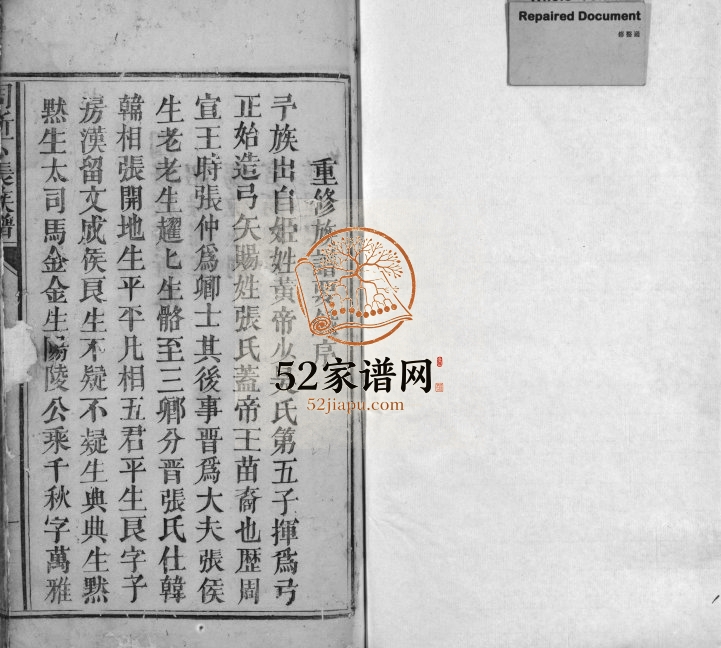 Repaired Document
修整過
重修族譜要
序
予族出自姬姓黃帝少氏第五子揮爲弓
正始造弓矢賜姓張氏蓋帝王苗裔也歷周
宣王時張仲爲卿士其後事晋爲大夫張侯
生老老生趯匕生骼至三卿分晋張氏仕韓
韓相張開地生平平凡相五君平生良字子
房漢留文成侯良生不疑不疑生典典生默
默生太司馬金金生陽陵公乘千秋字萬雅
公張族譜
52家谱网
52jiapu.com